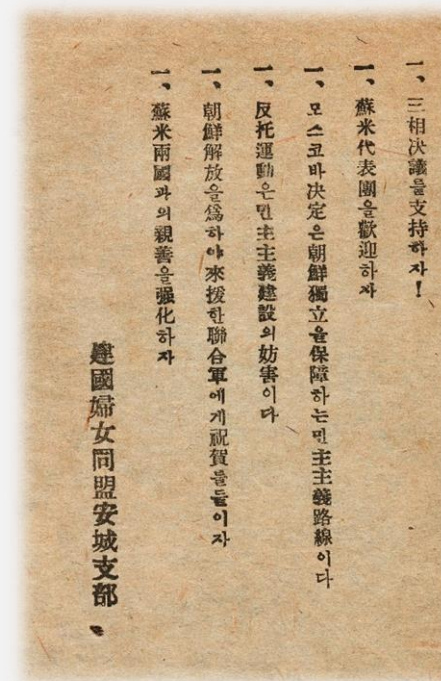 一、三相決議를支持하자！
一、蘇米代表團을歡迎하자
一、모스코바決定은朝鮮獨立을保障하는민主主義路線이다
一、反托運動은민主主義建設의妨害이다
一、朝鮮解放을爲하야來援한聯合軍에게祝賀를들이자
一、蘇米兩國과의親善을强化하자
建國婦女同盟安城支部